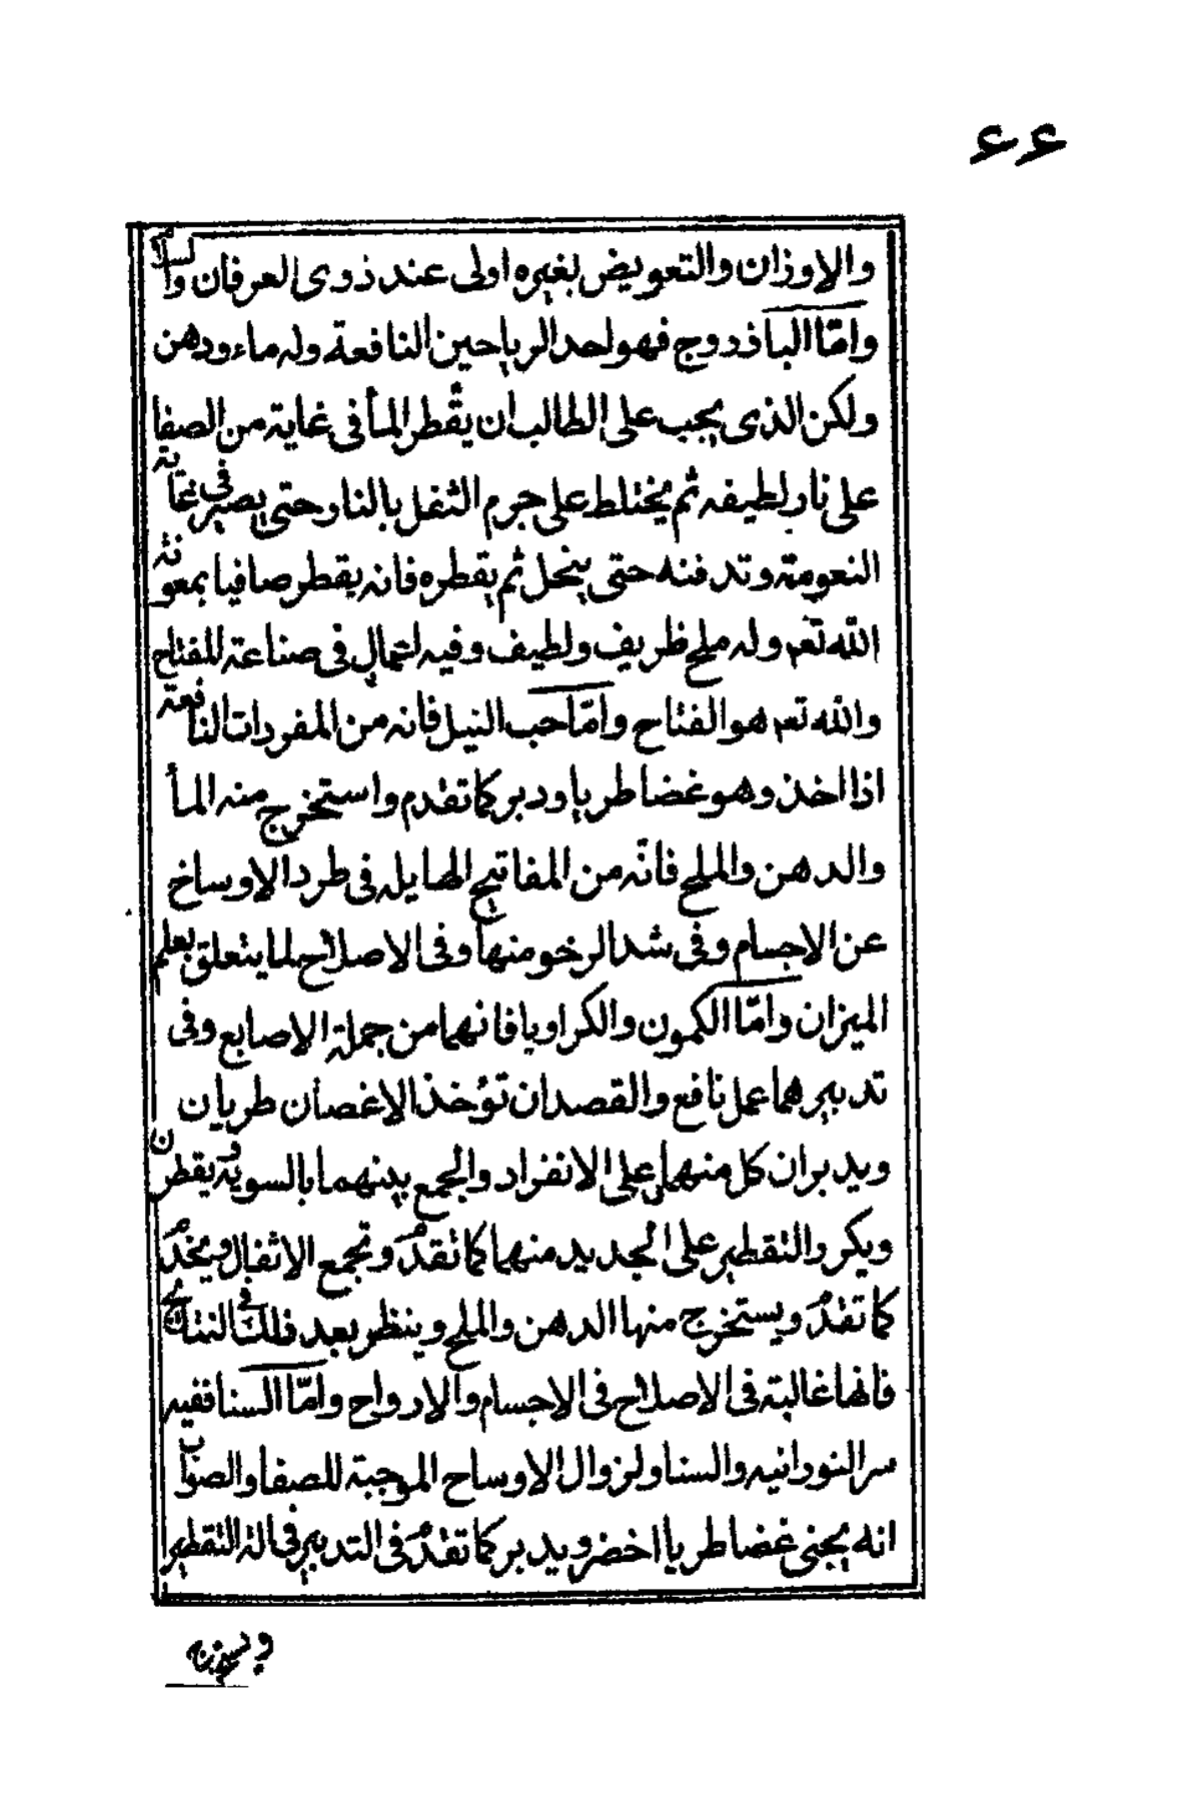 ٤٤
والاوزان والتعويض بغيره اولى عند ذوى العرفان والسلام
وامّا الباذروج فهو احد الرياحين النافعة وله ماء ودهن
ولكن الذى يجب على الطالب ان يقّطر المأ فى غاية من الصفا
على نار لطيفه ثم يختلط على جرم الثفل بالنار حتى يصير فى غاية
النعومة وتدفنه حتى ينحل ثم يقطره فانه يقطر صافيا بمعونة
الله تعم وله ملح ظريف ولطيف وفيه اعمال فى صناعة المفتاح
والله تعم هو الفتاح وامّا حب النيل فانه من المفردات النافعة
اذا اخذ وهو غضا طريا ودبر كما تقدم واستخرج منه المأ
والدهن والملح فانّه من المفاتيح الهايله فى طرد الاوساخ
عن الاجسام وفى شد الرخو منها وفى الاصلاح لما يتعلق بعلم
الميزان وامّا الكمون والكراويا فانهما من جملة الاصابع وفى
تدبيرهما عمل نافع والقصد ان تؤخذ الاغصأن طريان
ويدبران كل منهما على الانفراد والجمع بينهما بالسوية ويقطرن
ويكرر التقطير على الجديد منهما كما تقدم وتجمع الاثفال ويخدم
كما تقدم ويستخرج منها الدهن والملح وينظر بعد ذلك فى النتائج
فانها غالبة فى الاصلاح فى الاجسام والارواح وامّا السنا ففيه
سر النورانيه والسنا ولزوال الاوساخ الموجبة للصفا والصواب
انه يجنى غضا طريا اخضر ويدبر كما تقدم فى التدبير فى الة التقطير